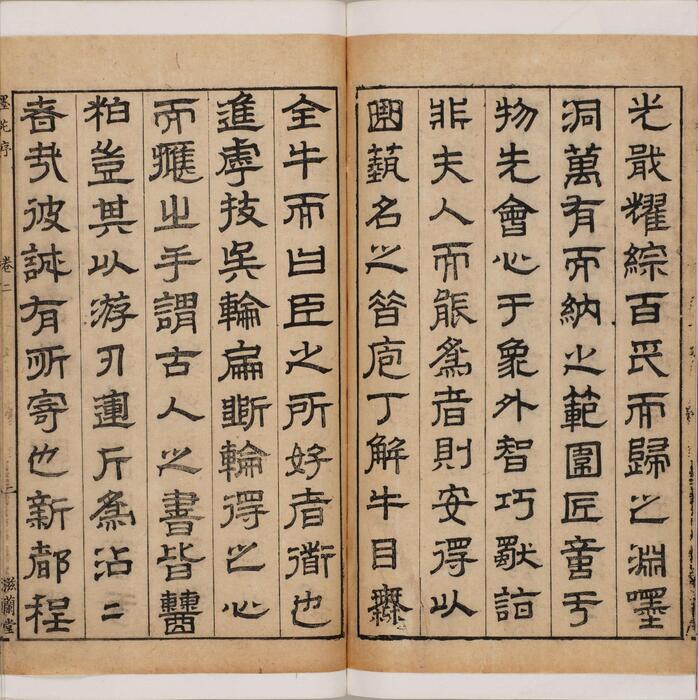 光戢耀綜百氏而歸之淵嘿
洞萬有而納之範圍匠意于
物先會心于象外智巧獸詣
非夫人而能爲者則安得以
藝名之昔庖丁解牛目無
全牛而曰臣之所好者衟也
進虖技矣輪扁斲輪得之心
而應之手謂古人之書皆糟
粕豈其以游刃運斤爲沾〻
者哉彼誠有所寄也新都程
墨苑序 卷二 二 滋蘭堂